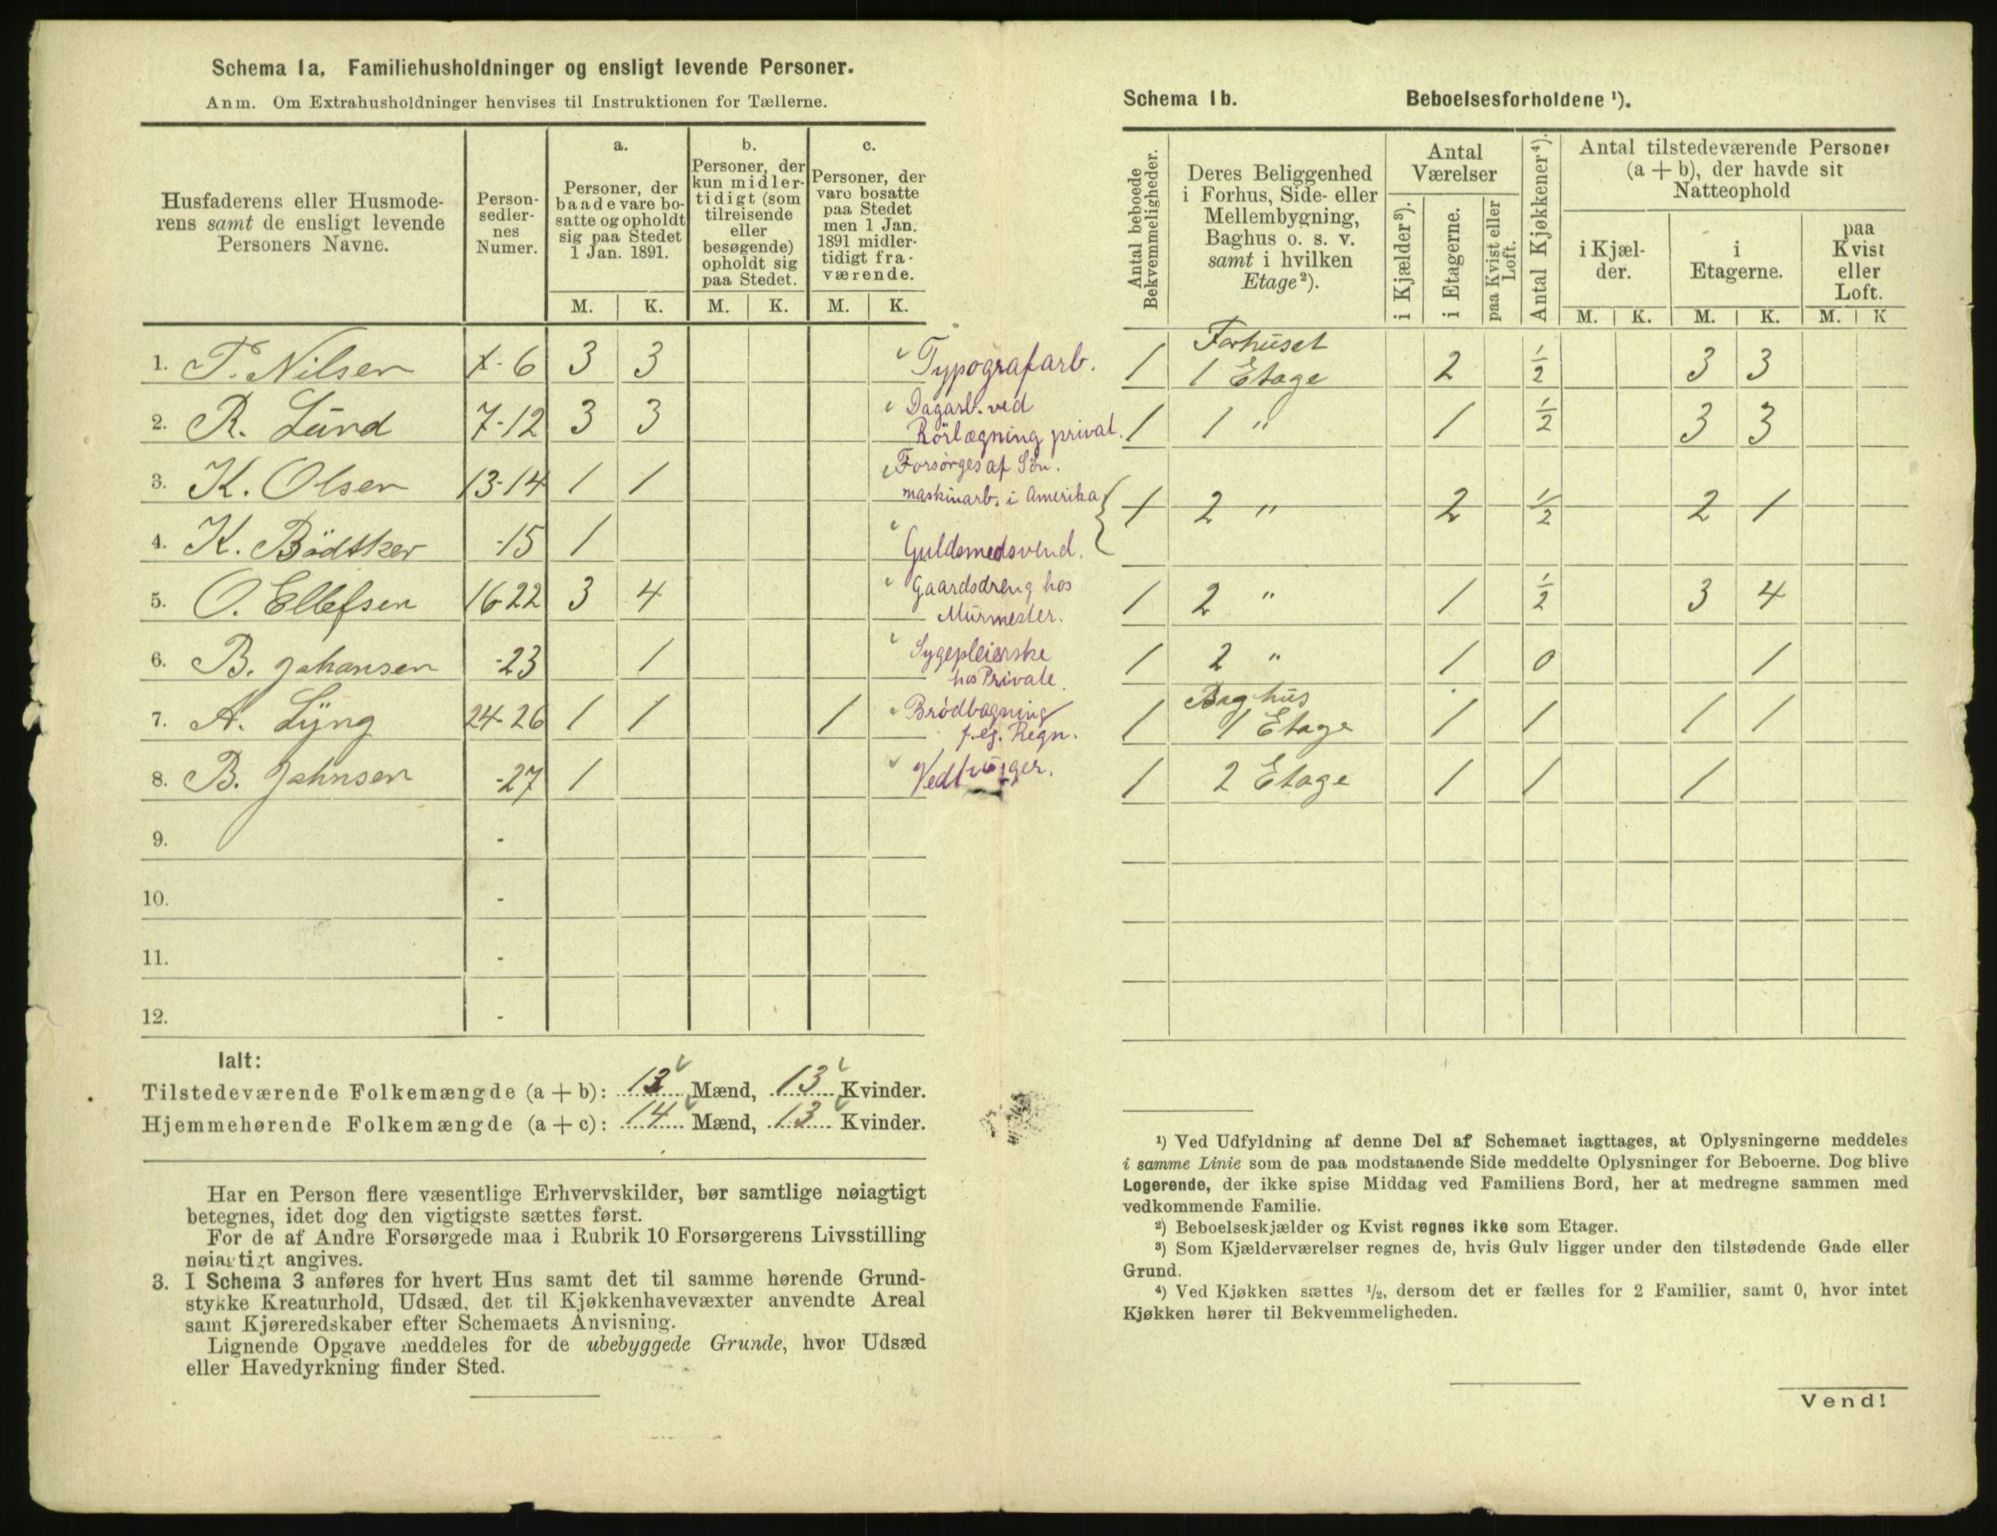 Schema 1a. Familiehusholdninger og ensligt levende Personer.
Anm. Om Extrahusholdninger henvises til Instruktionen for Tællerne.
Husfaderens eller Husmode-
rens samt de ensligt levende
Personers Navne.
Person-
sedler-
nes
Numer.
a.
Personer, der
baade vare bo-
satte og opholdt
sig paa Stedet
1 Jan. 1891.
b.
Personer, der
kun midler-
tidigt (som
tilreisende
eller
besøgende)
opholdt sig
paa Stedet.
c.
Personer, der
vare bosatte
paa Stedet
men 1 Jan.
1891 midler-
tidigt fra-
værende.
M. K. M. K. M. K.
1. P. Nilsen 1-6 3 3 Typografarb.
2. R. Lund 7-12 3 3 Dagarb. ved
Rörlægning privat.
3. K. Olsen 13-14 1 1 Forsörges af Sön.
maskinarb. i Amerika
4. K. Bödtker -15 1 Guldsmedsvend.
5. O. Ellefsen 16-22 3 4 Gaardsdreng hos
Murmester.
6. B. Johansen -23 1 Sygepleierske
hos Private.
7. A. Lyng 24-26 1 1 1 Brödbagning
f. eg. Regn.
8. B. Johnsen -27 1
9. -
10. -
11. -
12. -
Ialt:
Tilstedeværende Folkemængde (a + b): 13 Mænd, 13 Kvinder.
Hjemmehørende Folkemængde (a + c): 14 Mænd, 13 Kvinder.
Har en Person flere væsentlige Erhvervskilder, bør samtlige nøiagtigt
betegnes, idet dog den vigtigste sættes først.
For de af Andre Forsørgede maa i Rubrik 10 Forsørgerens Livsstilling
nøiagtigt angives.
3. I Schema 3 anføres for hvert Hus samt det til samme hørende Grund-
stykke Kreaturhold, Udsæd, det til Kjøkkenhavevæxter anvendte Areal
samt Kjøreredskaber efter Schemaets Anvisning.
Lignende Opgave meddeles for de ubebyggede Grunde, hvor Udsæd
eller Havedyrkning finder Sted.
Schema 1b. Beboelsesforholdene ¹).
Antal beboede
Bekvemmeligheder.
Deres Beliggenhed
i Forhus, Side- eller
Mellembygning,
Baghus o. s. v.
samt i hvilken
Etage²).
Antal
Værelser
i Kjælder³).
i Etagerne.
paa Kvist eller
Loft.
Antal Kjøkkener⁴).
Antal tilstedeværende Personer
(a + b), der havde sit
Natteophold
i Kjæl-
der.
i
Etagerne.
paa
Kvist
eller
Loft.
M. K. M. K. M. K
1 Forhuset
1 Etage 2 ½ 3 3
1 1 " 1 ½ 3 3
1 2 " 2 ½ 2 1
1 2 " 1 ½ 3 4
1 2 " 1 0 1
1 Baghus
1 Etage 1 1 1 1
1 2 Etage 1 1 1
¹) Ved Udfyldning af denne Del af Schemaet iagttages, at Oplysningerne meddeles
i samme Linie som de paa modstaaende Side meddelte Oplysninger for Beboerne. Dog blive
Logerende, der ikke spise Middag ved Familiens Bord, her at medregne sammen med
vedkommende Familie.
²) Beboelseskjælder og Kvist regnes ikke som Etager.
³) Som Kjælderværelser regnes de, hvis Gulv ligger under den tilstødende Gade eller
Grund.
⁴) Ved Kjøkken sættes ½, dersom det er fælles for 2 Familier, samt 0, hvor intet
Kjøkken hører til Bekvemmeligheden.
Vend!